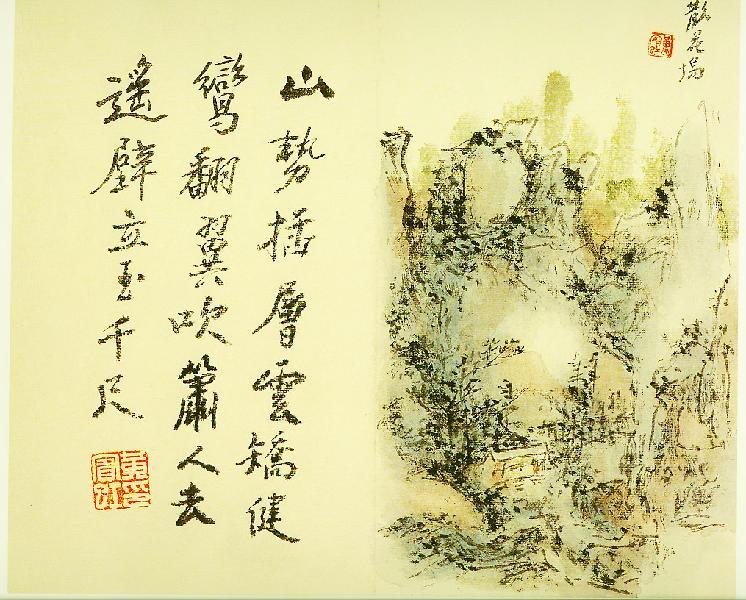 散花塢
山勢插層雲矯健
鸞翻翼吹簫人去
遙壁立玉千尺